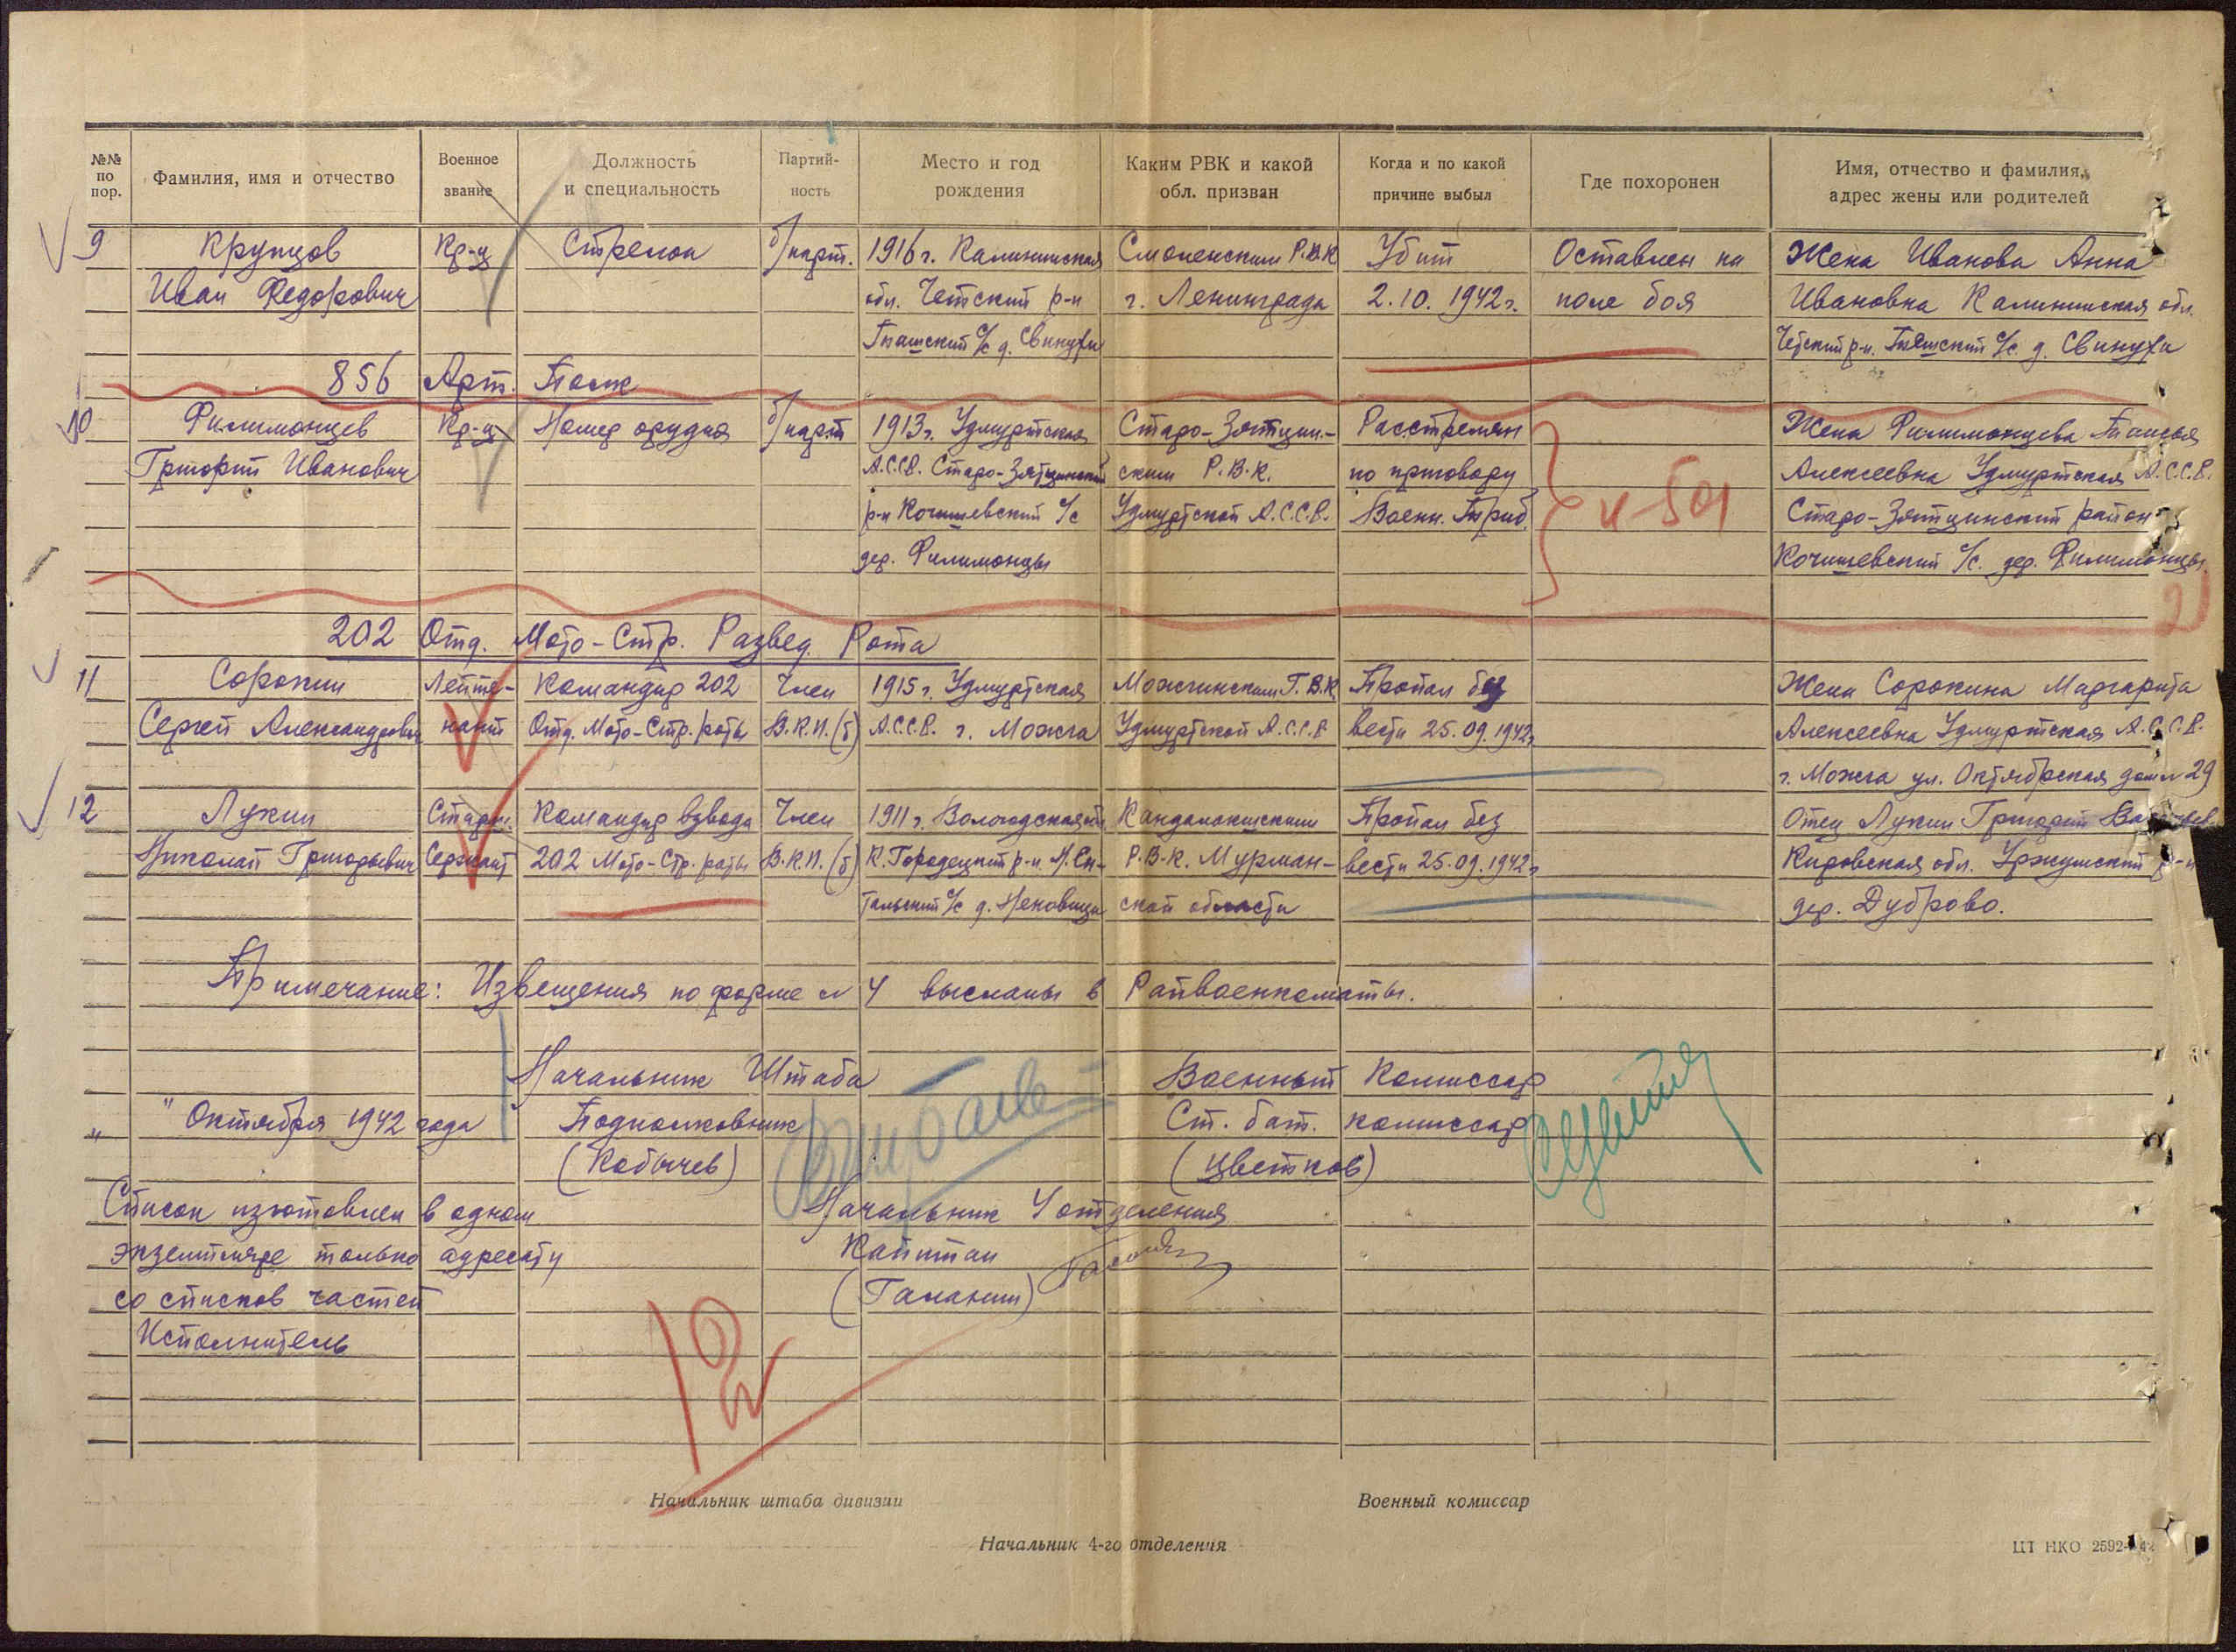 №№ по пор.
Фамилия, имя и отчество
Военное звание
Должность и специальность
Партий-ность
Место и год рождения
Каким РВК и какой обл. призван
Когда и по какой причине выбыл
Где похоронен
Имя, отчество и фамилия, адрес жены или родителей
9 Крупцов Кр-ц Стрелок б/парт. 1916 г. Калининская Смоленским Р.В.К Убит Оставлен на Жена Иванова Анна
Иван Федорович обл. Четский р-н г. Ленинграда 2.10.1942 г. поле боя Ивановна Калининская обл.
с/с д. Свинухи Четский р-н. с/с д. Свинухи
856 Арт. Полк
10 Филимонцев Кр-ц Номер орудия б/парт 1913 г. Удмуртская Старо-Зятцин- Расстрелян Жена Филимонцева Таисья
Григорий Иванович А.С.С.Р. Старо-Зятцинский ским Р.В.К. по приговору Алексеевна Удмуртская А.С.С.Р.
р-н Кочишевский с/с Удмуртской А.С.С.Р. Военн. Триб. Старо-Зятцинский район
дер. Филимонцы Кочишевский с/с. дер. Филимонцы
и-501
202 Отд. Мото-Стр. Развед. Рота
11 Сорокин Лейте- Командир 202 Член 1915 г. Удмуртская Можгинским Г.В.К Пропал без Жена Сорокина Маргарита
Сергей Александрович нант Отд. Мото-Стр. роты В.К.П.(б) А.С.С.Р. г. Можга Удмуртской А.С.С.Р вести 25.09.1942г Алексеевна Удмуртская А.С.С.Р.
г. Можга ул. Октябрская дом № 29
12 Лукин Старш. Командир взвода Член 1911 г. Вологодская обл. Кандалокшским Пропал без Отец Лукин Григорий
Николай Григорьевич Сержант 202 Мото-Стр. роты В.К.П.(б) К.Городецкий р-н Р.В.К. Мурман- вести 25.09.1942 г Кировская обл. Уржумский р-н
с/с д. ской области дер. Дуброво.
Примечание: Извещения по форме № 4 высланы в Райвоенкоматы.
Начальник Штаба Военный Комиссар
" " Октября 1942 года Подполковник Ст. бат. комиссар
(Кобычев) (Цветков)
Список изготовлен в одном Начальник 4 отделения
экземпляре только адресату Капитан
со списков частей (Галанин)
Исполнитель
12
Начальник штаба дивизии Военный комиссар
Начальник 4-го отделения
ЦТ НКО 2592-42